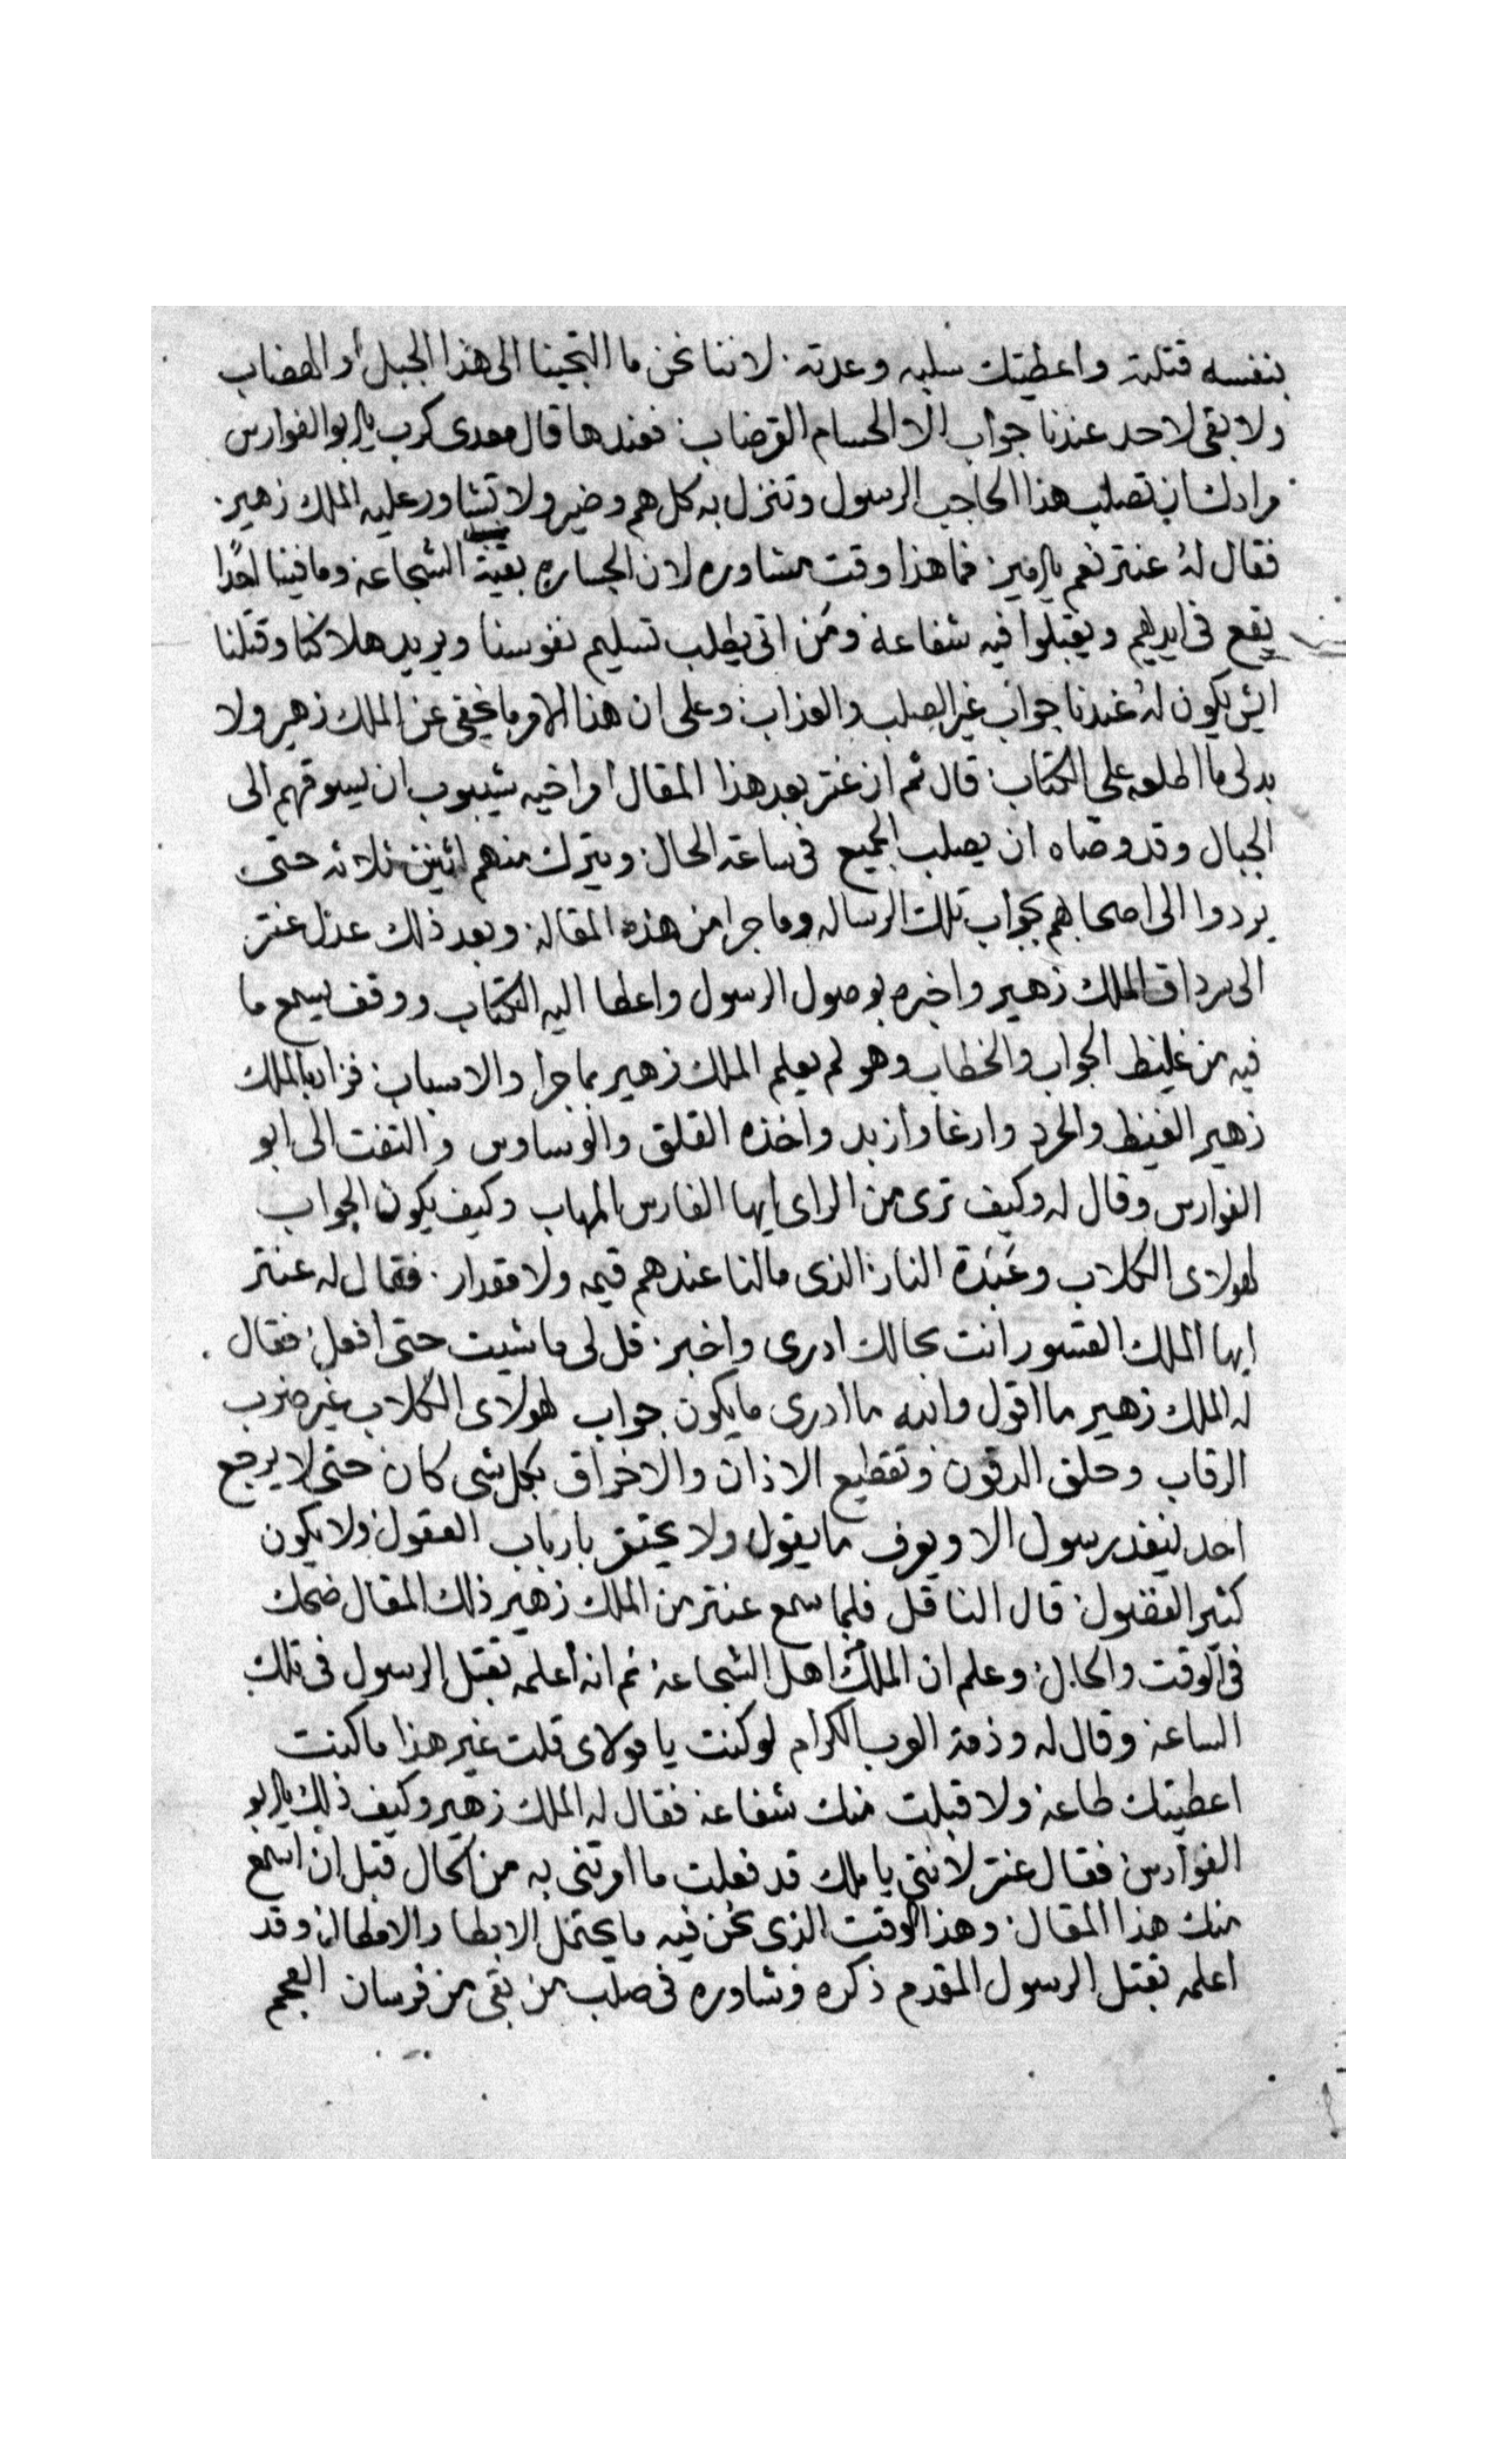 بنفسه قتلته واعطيتك سلبه وعدته. لاننا نحن ما التجينا الى هذا الجبل أو الهضاب
ولا بقى لاحد عندنا جواب الا الحسام القرضاب: فعندها قال معدى كرب يا ابو الفوارس
مرادك ان تصلب هذا الحاجب الرسول وتنزل به كل هم وضير ولا تشاور عليه الملك زهير.
فقال لهُ عنتر نعم يا امير: فما هذا وقت مشاوره لان الجساره بقية الشجاعه وما فينا احدًا
يقع فى ايديهم ويقبلوا فيه شفاعة ومَن اتى يطلب تسليم نفوسنا ويريد هلاكنا وقتلنا
ايش يكون لهُ عندنا جواب غير الصلب والعذاب: وعلى ان هذا الامر ما يخفى عن الملك زهير ولا
بد لى ما اطلعه على الكتاب: قال ثم ان عنتر بعد هذا المقال امر اخيه شيبوب ان يسوقهم الى
الجبال وقد وصّاه ان يصلب الجميع فى ساعة الحال: ويترك منهم اثنين ثلاثه حتى
يردوا الى اصحابهم بجواب تلك الرساله وما جرا من هذه المقاله: وبعد ذلك عدل عنتر
الى سرداق الملك زهير واخبره بوصول الرسول واعطا اليه الكتاب ووقف يسمع ما
فيه من غليظ الجواب والخطاب وهو لم يعلم الملك زهير بما جرا والاسباب: فزاد بالملك
زهير الغيظ والحرد وارغا وازبد واخذه القلق والوسواس والتفت الى ابو
الفوارس وقال له وكيف ترى من الراى ايها الفارس المهاب وكيف يكون الجواب
لهولاى الكلاب وعَبَدَة النار: الذى مالنا عندهم قيمه ولا مقدار. فقال له عنتر
ايها الملك القسور انت بحالك ادرى واخبر: قل لى ما شيت حتى افعل: فقال
له الملك زهير ما اقول والله ما ادرى ما يكون جواب لهولاى الكلاب غير ضرب
الرقاب وحلق الدقون وتقطيع الاذان والاخراق بكل شى كان حتى لا يرجع
احد ينفد رسول الا ويعرف ما يقول ولا يحتقر بارباب العقول ولا يكون
كثير الفضول: قال الناقل فلما سمع عنتر من الملك زهير ذلك المقال ضحك
فى الوقت والحال: وعلم ان الملك اهل الشجاعة ثم انه أعلمه بقتل الرسول فى تلك
الساعة وقال له وذمة العرب الكرام لو كنت يا مولاى قلت غير هذا ما كنت
اعطيتك طاعه ولا قبلت منك شفاعة فقال له الملك زهير وكيف ذلك يا ابو
الفوارس: فقال عنتر لاننى يا ملك قد فعلت ما امرتنى به من الحال قبل ان اسمع
منك هذا المقال: وهذا الوقت الذى نحن فيه ما يحتمل الابطا والامطال: وقد
اعلمه بقتل الرسول المقدم ذكره وشاوره فى صلب من بقى من فرسان العجم